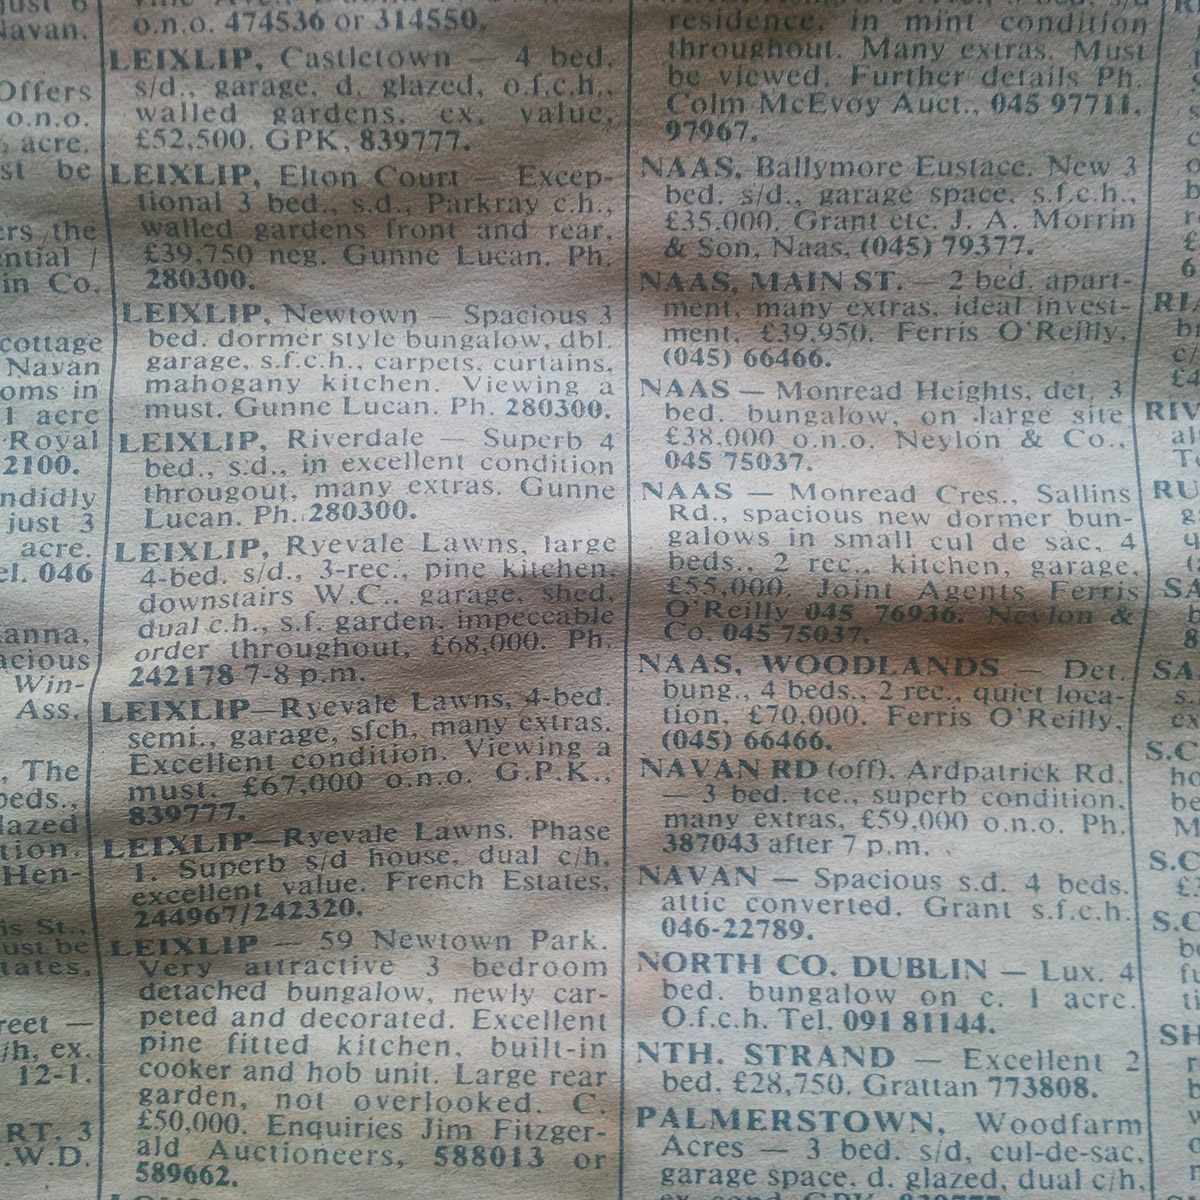 just 6
Navan.
Offers
o.n.o.
acre.
st be
ers the
ential /
in Co.
cottage
Navan
oms in
1 acre
Royal
2100.
ndidly
just 3
acre.
el. 046
anna,
acious
Win-
Ass.
, The
beds.,
lazed
tion.
Hen-
is St.,
ust be
tates,
reet —
/h, ex.
12-1.
RT, 3
.W.D.
o.n.o. 474536 or 314550.
LEIXLIP, Castletown — 4 bed.
s/d., garage, d. glazed, o.f.c.h.,
walled gardens, ex. value,
£52,500. GPK, 839777.
LEIXLIP, Elton Court — Excep-
tional 3 bed., s.d., Parkray c.h.,
walled gardens front and rear,
£39,750 neg. Gunne Lucan. Ph.
280300.
LEIXLIP, Newtown — Spacious 3
bed. dormer style bungalow, dbl.
garage, s.f.c.h., carpets, curtains,
mahogany kitchen. Viewing a
must. Gunne Lucan. Ph. 280300.
LEIXLIP, Riverdale — Superb 4
bed., s.d., in excellent condition
througout, many extras. Gunne
Lucan. Ph. 280300.
LEIXLIP, Ryevale Lawns, large
4-bed. s/d., 3-rec., pine kitchen,
downstairs W.C., garage, shed,
dual c.h., s.f. garden, impeccable
order throughout, £68,000. Ph.
242178 7-8 p.m.
LEIXLIP—Ryevale Lawns, 4-bed.
semi., garage, sfch, many extras.
Excellent condition. Viewing a
must. £67,000 o.n.o. G.P.K.,
839777.
LEIXLIP—Ryevale Lawns. Phase
1. Superb s/d house, dual c/h,
excellent value. French Estates,
244967/242320.
LEIXLIP — 59 Newtown Park.
Very attractive 3 bedroom
detached bungalow, newly car-
peted and decorated. Excellent
pine fitted kitchen, built-in
cooker and hob unit. Large rear
garden, not overlooked. C.
£50,000. Enquiries Jim Fitzger-
ald Auctioneers, 588013 or
589662.
residence, in mint condition
throughout. Many extras. Must
be viewed. Further details Ph.
Colm McEvoy Auct., 045 97711,
97967.
NAAS, Ballymore Eustace. New 3
bed. s/d., garage space, s.f.c.h.,
£35,000. Grant etc. J. A. Morrin
& Son, Naas, (045) 79377.
NAAS, MAIN ST. — 2 bed. apart-
ment, many extras, ideal invest-
ment, £39,950. Ferris O'Reilly,
(045) 66466.
NAAS — Monread Heights, det. 3
bed. bungalow, on large site
£38,000 o.n.o. Neylon & Co.,
045 75037.
NAAS — Monread Cres., Sallins
Rd., spacious new dormer bun-
galows in small cul de sac, 4
beds., 2 rec., kitchen, garage,
£55,000. Joint Agents Ferris
O'Reilly 045 76936. Neylon &
Co. 045 75037.
NAAS, WOODLANDS — Det.
bung., 4 beds., 2 rec., quiet loca-
tion, £70,000. Ferris O'Reilly,
(045) 66466.
NAVAN RD (off), Ardpatrick Rd.
— 3 bed. tce., superb condition,
many extras, £59,000 o.n.o. Ph.
387043 after 7 p.m.
NAVAN — Spacious s.d. 4 beds.
attic converted. Grant s.f.c.h.
046-22789.
NORTH CO. DUBLIN — Lux. 4
bed. bungalow on c. 1 acre.
O.f.c.h. Tel. 091 81144.
NTH. STRAND — Excellent 2
bed. £28,750. Grattan 773808.
PALMERSTOWN, Woodfarm
Acres — 3 bed. s/d, cul-de-sac,
garage space, d. glazed, dual c/h,
RI
b
c/
£4
RIV
al
T
RU
g
SA
b
8
SA
s.
ex
S.C
ho
be
M
S.C
£
S.C
b
f
t
SH